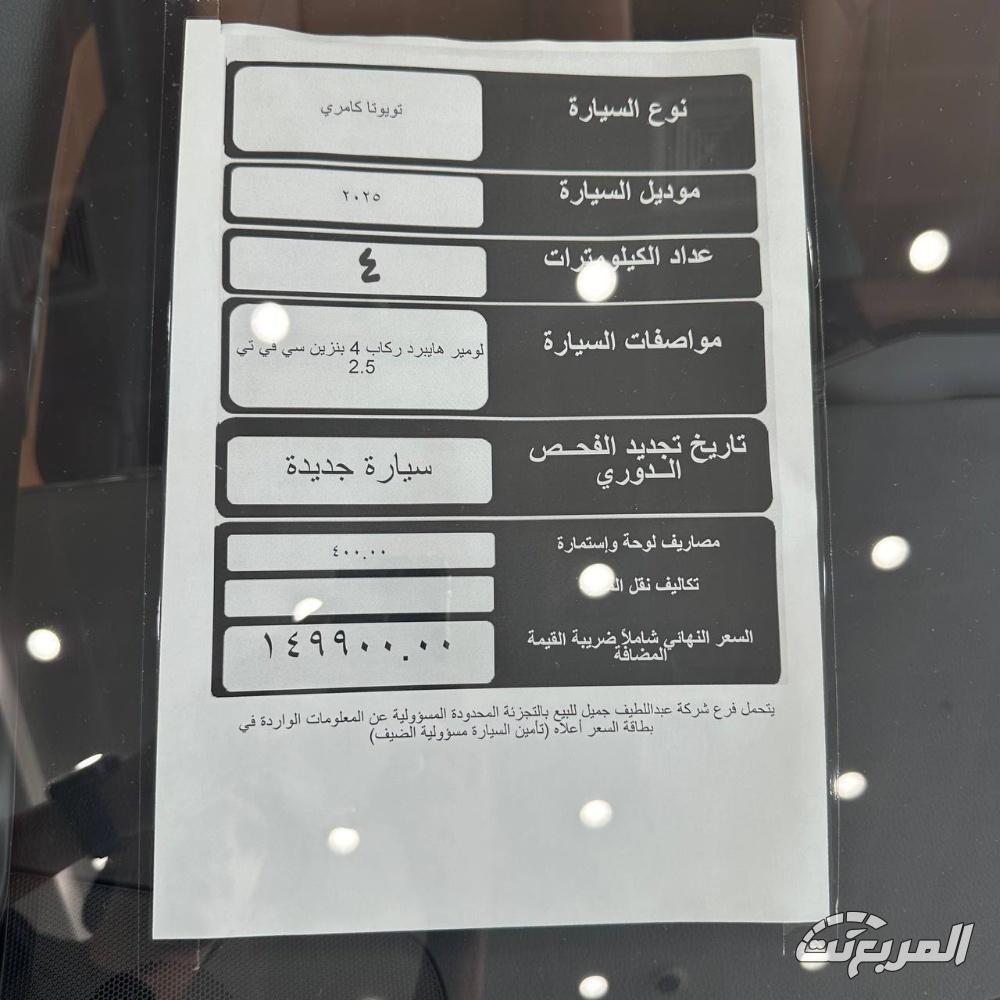 نوع السيارة
تويوتا كامري
موديل السيارة
٢٠٢٥
عداد الكيلومترات
٤
مواصفات السيارة
لومير هايبرد ركاب 4 بنزين سي في تي
2.5
تاريخ تجديد الفحص
الدوري
سيارة جديدة
مصاريف لوحة وإستمارة
٤٠٠.٠٠
تكاليف نقل
السعر النهائي شاملاً ضريبة القيمة
المضافة
١٤٩٩٠٠.٠٠
يتحمل فرع شركة عبداللطيف جميل للبيع بالتجزئة المحدودة المسؤولية عن المعلومات الواردة في
بطاقة السعر أعلاه (تأمين السيارة مسؤولية الضيف)
المربع نت